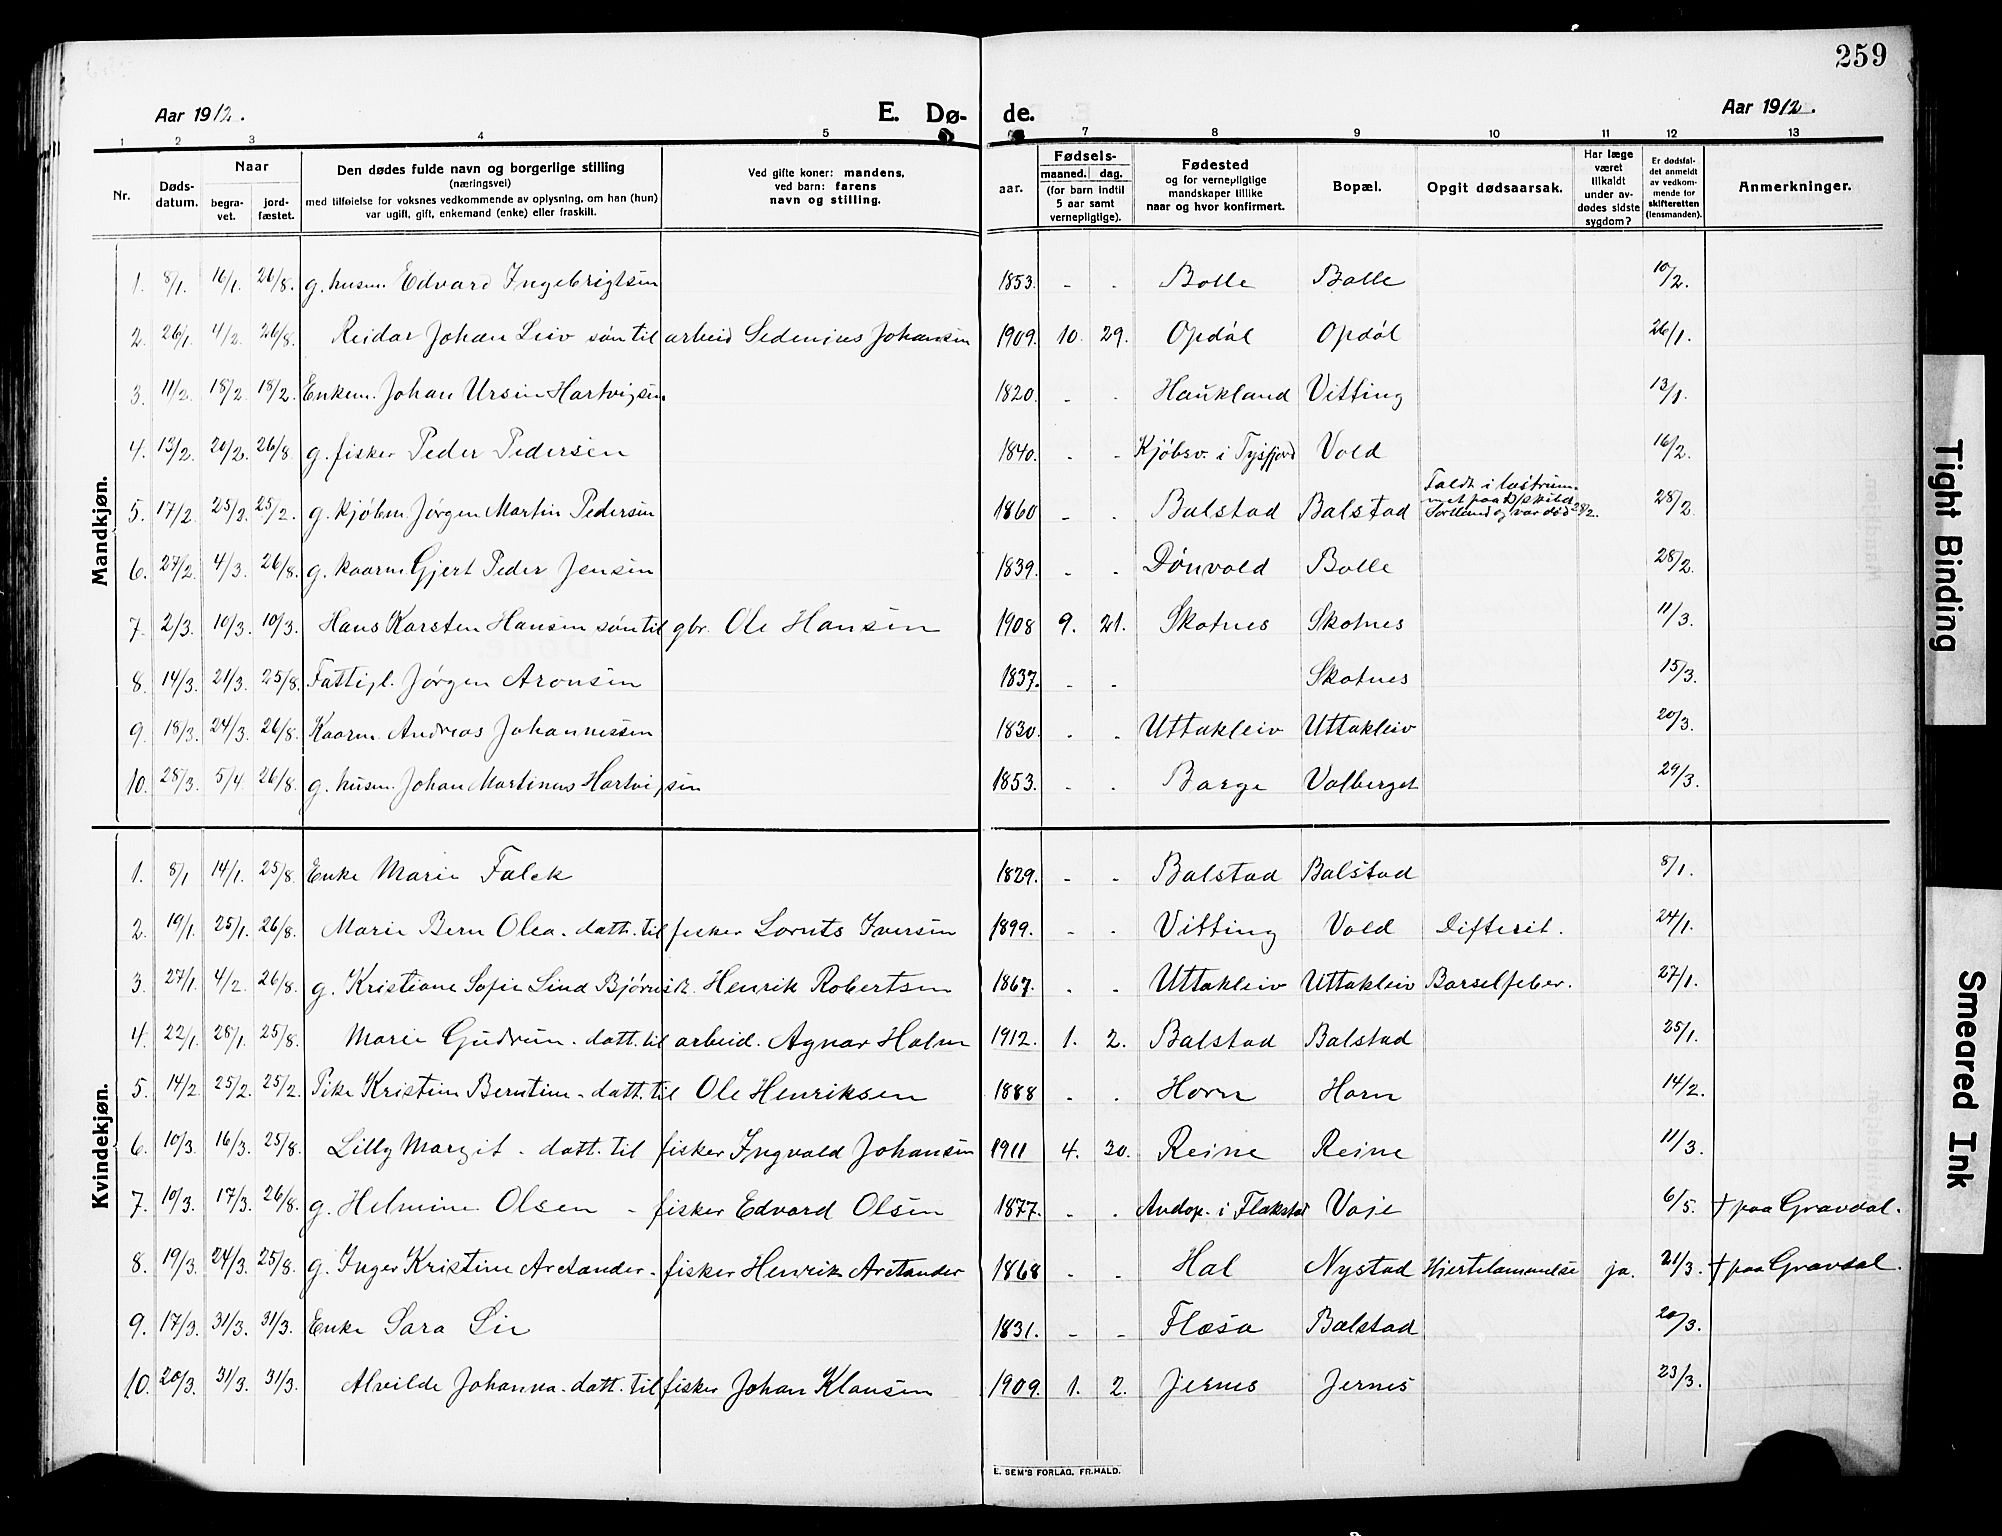 259
Aar 1912. E. Dø- de. Aar 1912.
1 2 3 4 5 7 8 9 10 11 12 13
Nr. Døds-datum. Naar begra-vet. jord-fæstet. Den dødes fulde navn og borgerlige stilling (næringsvei) med tilføielse for voksnes vedkommende av oplysning, om han (hun) var ugift, gift, enkemand (enke) eller fraskill. Ved gifte koner: mandens, ved barn: farens navn og stilling. aar. Fødsels- maaned. dag. (for barn indtil 5 aar samt vernepligtige). Fødested og for vernepligtige mandskaper tillike naar og hvor konfirmert. Bopæl. Opgit dødsaarsak. Har læge været tilkaldt under av-dødes sidste sygdom? Er dødsfal-det anmeldt av vedkom-mende for skifteretten (lensmanden). Anmerkninger.
Mandkjøn.
1. 8/1. 16/1. 26/8. g. husm. Edvard Ingebrigtsen 1853. - - Bolle Bolle 10/2.
2. 26/1. 4/2. 26/8. Reidar Johan Leiv søn til arbeid Sedenius Johansen 1909. 10. 29. Opdøl Opdøl 26/1.
3. 11/2. 18/2. 18/2. Enkem. Johan Ursin Hartvigsen 1820. - - Haukland Vitting 13/1.
4. 13/2. 20/2. 26/8. g. fisker Peder Pedersen 1840. - - Kjøbsv. i Tysfjord Vold 16/2.
5. 17/2. 25/2. 25/2. g. kjøbm. Jørgen Martin Pedersen 1860 - - Balstad Balstad Faldt i lastrum-met paa D/skibet Sortland og var død 28/2. 28/2
6. 27/2. 4/3. 26/8. g. kaarm. Gjert Peder Jensen 1839. - - Dønvold Bolle 28/2.
7. 2/3. 10/3. 10/3. Hans Karsten Hansen søn til gbr. Ole Hansen 1908 9. 21. Skotnes Skotnes 11/3.
8. 14/3. 21/3. 25/8. Fattigl. Jørgen Aronsen 1837. - - Skotnes 15/3.
9. 18/3. 24/3. 26/8. Kaarm. Andreas Johannessen 1830. - - Uttakleiv Uttakleiv 20/3.
10. 28/3. 5/4. 26/8. g. husm. Johan Martinus Hartvigsen 1853. - - Barge Valberget 29/3.
Kvindekjøn.
1. 8/1 14/1. 25/8. Enke Marie Falck 1829. - - Balstad Balstad 8/1.
2. 19/1. 25/1. 26/8. Marie Bern Olea - datt. til fisker Lornts Iversen 1899. - - Vitting Vold Difterit. 24/1.
3. 27/1. 4/2. 26/8. g. Kristiane Sofie Lind Bjørnsdt. Henrik Robertsen 1867. - - Uttakleiv Uttakleiv Barselfeber. 27/1.
4. 22/1. 28/1. 25/8. Marie Gudrun - datt. til arbeid. Agnar Holm 1912. 1. 2. Balstad Balstad 25/1.
5. 14/2 25/2. 25/2. Pike Kristine Berntine - datt. til Ole Henriksen 1888 - - Horn Horn 14/2.
6. 10/3. 16/3. 25/8. Lilly Margit - datt. til fisker Ingvald Johansen 1911 4. 30. Reine Reine 11/3.
7. 10/3. 17/3. 26/8. g. Helmine Olsen - fisker Edvard Olsen 1877. - - Andop. i Flakstad Voje 6/5. † paa Gravdal.
8. 19/3. 24/3. 25/8. g. Inger Kristine Arctander - fisker Henrik Arctander 1868 - - Hal Nystad Hjertelammelse ja. 21/3. † paa Gravdal.
9. 17/3. 31/3. 31/3. Enke Sara Lie 1831. - - Flæsa Balstad 20/3.
10. 20/3. 31/3. 31/3. Alvilde Johanna - datt. til fisker Johan Klausen 1909. 1. 2. Jernes Jernes 23/3.
E. SEM'S FORLAG, FR.HALD.
Tight Binding
Smeared Ink